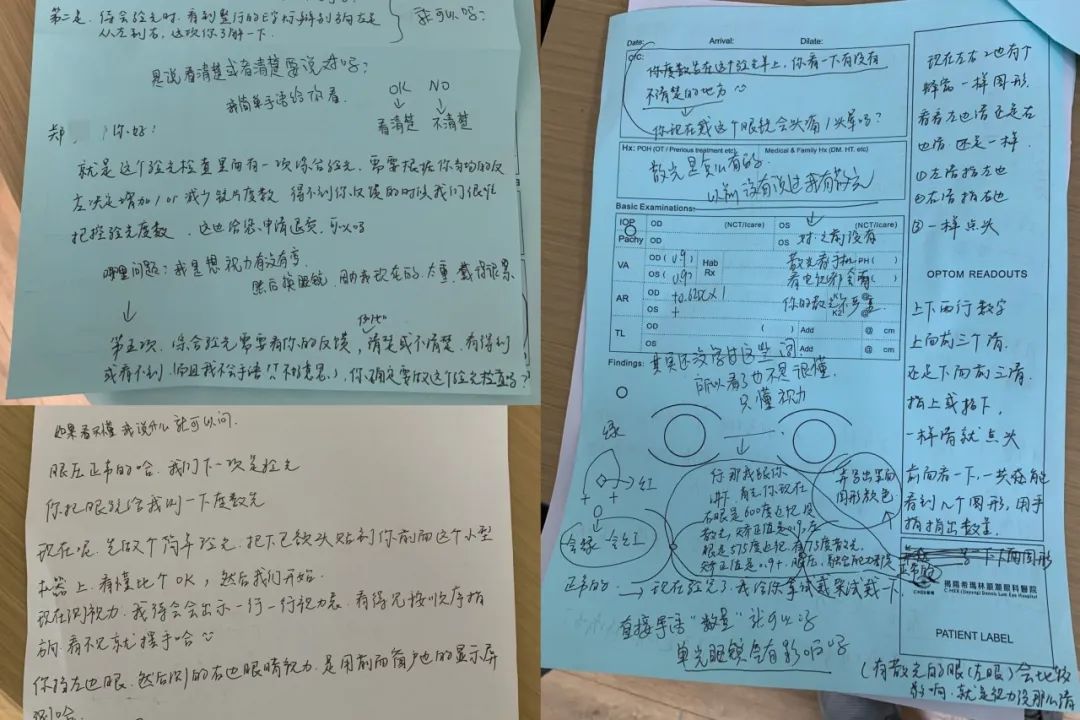 第二是,待会验光时,看到整行的E字母辨别方向左是
从左到右,这次你了解一下.
就可以吗?
是说看清楚或者清楚要说对吗?
我简单手语给你看.
OK NO
看清楚 不清楚
郑 你好:
就是这个验光检查里面有一次综合验光,需要根据你当的反
应决定增加/or减少镜片度数 得不到你反馈的时候我们很难
把控验光度数,这边给您申请退费,可以吗
哪里问题:我是想视力有没有变,
然后换眼镜,因为我现在的太重,戴得很累
第五项.综合验光需要有你的反馈,清楚或不清楚,看得到
或看不到,而且我不会手语(不好意思),你确定要做这个验光检查吗?
如果看不懂我说什么就可以问.
眼压正常的哈,我们下一次是验光
你把眼镜给我测一下度数先
现在呢,先做个简单验光,把下巴额头贴到你前面这个小型
机器上,看懂比个OK,然后我们开始.
现在测视力,我待会会出示一行一行视力表,看得见按顺序指
方向,看不见就摆手哈
你挡左边眼,然后测的右边眼睛视力,是用前面窗户边的显示屏
测哈
Date: Arrival: Dilate:
C/C:
你度数写在这个验光单上,你看一下有没有
不清楚的地方
你现在戴这个眼镜会头痛/头晕吗?
Hx: POH (OT / Previous treatment etc) Medical & Family Hx (DM. HT. etc)
散光是会有的
以前没有说过我有散光
Basic Examinations:
IOP OD (NCT/Icare) OS (NCT/Icare)
Pachy OD OS 对,之前没有
VA OD ( 0.9 ) Hab Rx 散光看手机 PH( )
OS ( 0.9 ) 看电视都会有 ( )
AR OD 你的散光不多 K1 @
OS + K2 @
TL OD ( ) Add @ cm
OS Add @ cm
Findings:
其实还没学过这些词
所以看了也不是很懂.
只懂视力
绿
红
含绿 含红
行那我跟你
讲下 首先你现在
右眼是600度近视 没
散光,矫正值是0.9,左
眼是575度近视 有75度散光.
矫正值是0.9+.眼压,融合能力都是
正常的.
弄写出里面
图形颜色
现在验完了,我给你拿试戴架试戴一下
直接手语"数量"就可以吗
单光眼镜会有影响吗
(有散光的眼(左眼)会比较
影响,就是视力没那么清
现在左右边也有个
蜂窝一样图形.
看看左边清还是右
边清,还是一样.
①左清指左边
②右清指右边
③一样点头
OPTOM READOUTS
上下两行数字
上面前三个清.
还是下面前三清.
指上或指下,
一样清就点头
前面看一下,一共能
看到几个图形,用手
指指出数量
揭陽希瑪林順潮眼科醫院
C-MER (Jieyang) Dennis Lam Eye Hospital
PATIENT LABEL